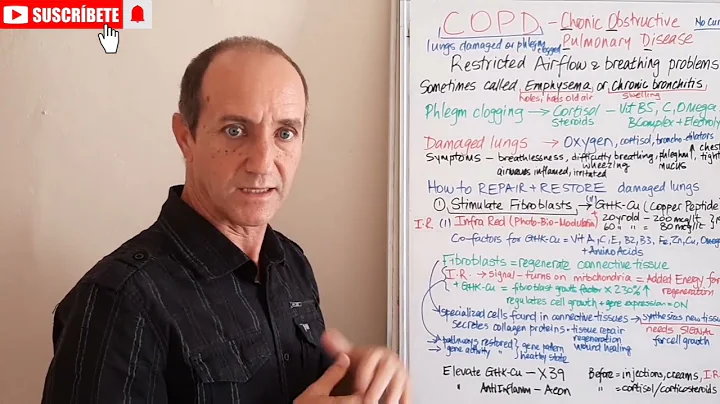 SUSCRÍBETE
COPD - Chronic Obstructive No Cur
lungs damaged or phlegm clogged Pulmonary Disease
Restricted Airflow & breathing problems
Sometimes called Emphysema or Chronic bronchitis
holes, holds old air swelling
Phlegm clogging → Cortisol - Vit B5, C, Omega
steroids B Complex + Electroly
Damaged lungs → Oxygen, cortisol, broncho-dilators
Symptoms - breathlessness, difficulty breathing, phlegm, tight
chest
wheezing mucus
airways inflamed, irritated
How to REPAIR + RESTORE damaged lungs
① Stimulate Fibroblasts → GHK-Cu (Copper Peptide
I.R. (1) Infra Red (Photo-Bio-Modulation) + 20yrold - 200mcg/lt
60 " " = 80mcg/lt
Co-factors for GHK-Cu = Vit A, C, E, B2, B3, Fe, Zn, Cu, Omeg
+ Amino Acids
Fibroblasts = regenerate connective tissue
I.R. → signal - turns on mitochondria = Added Energy for
regeneration
+ GHK-Cu = fibroblast growth factor x 230% ↑
regulates cell growth + gene expression = ON
specialized cells found in connective tissues → Synthesizes new tissu
Secretes collagen proteins • tissue repair needs SIGNAL
regeneration for cell growth
→ pathways restored gene pattern wound healing
→ gene activity healthy state
Elevate GHK-Cu - X39 Before = injections, creams, I.R
" Anti Inflamm - Aeon " = cortisol/corticosteroids